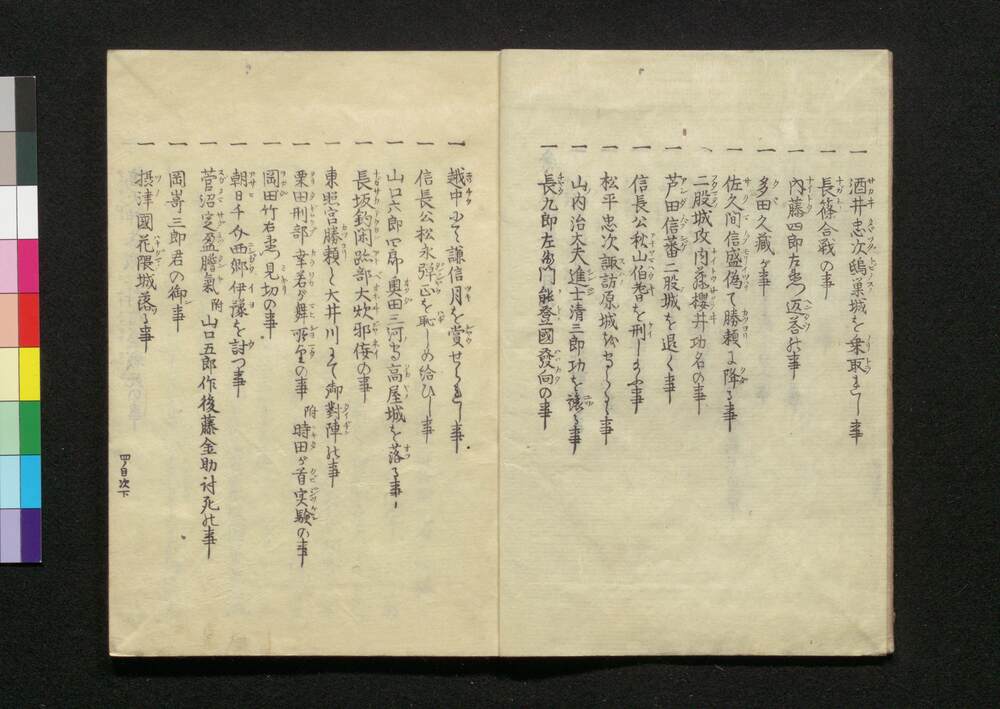 一 酒井忠次鳴巣城を乗取る事
一 長篠合戦の事
一 内藤四郎左衛門返答の事
一 多田久蔵が事
一 佐久間信盛偽て勝頼に降る事
一 二股城攻内藤櫻井功名の事
一 芦田信蕃二股城を退く事
一 信長公秋山伯耆を刑し
一 松平忠次諏訪原城
一 山内治太夫進士清三郎功を譲る事
一 長九郎左衛門能登國發向の事
一 越中にて謙信月を賞せられし事
一 信長公松永弾正を恥しめ給ひし事
一 山口六郎四郎奥田三河守高屋城を落る事
一 長坂釣閑跡部大炊邪侫の事
一 東照宮勝頼と大井川にて御對陣の事
一 栗田刑部幸若が舞所望の事 附 時田が首実験の事
一 岡田竹右衛門見切の事
一 朝日千助西郷伊豫を討つ事
一 菅沼定盈膽氣 附 山口五郎作後藤金助討死の事
一 岡嵜三郎君の御事
一 摂津國花隈城落る事
四ノ目次下